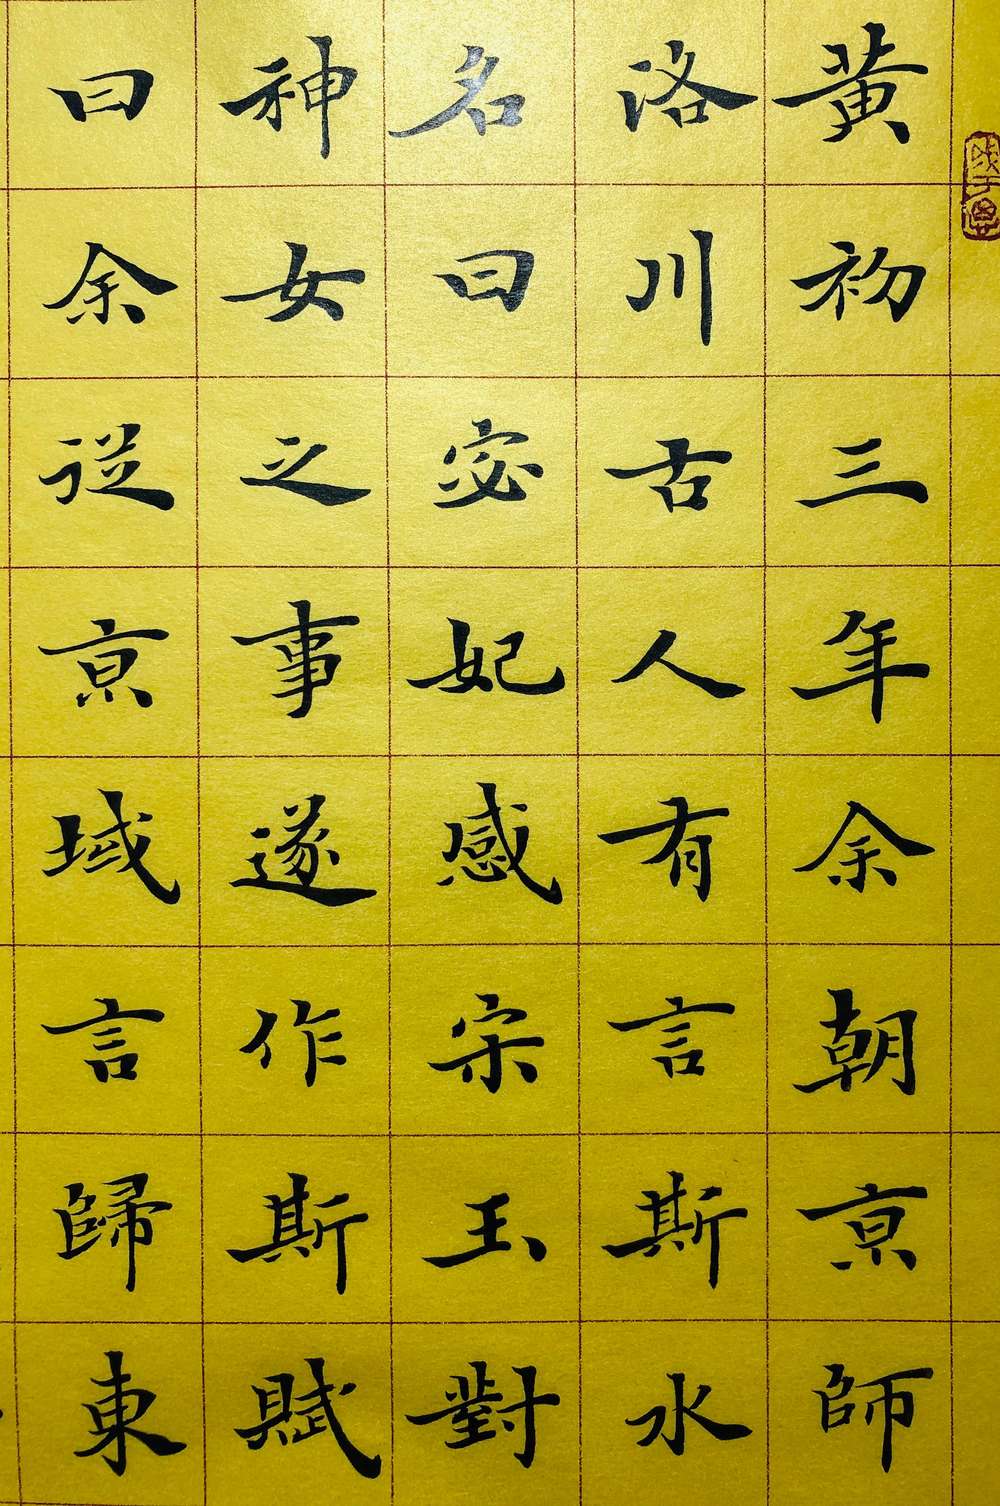 黄初三年余朝京師
洛川古人有言斯水
名曰宓妃感宋玉對
神女之事遂作斯賦
曰余從京域言歸東